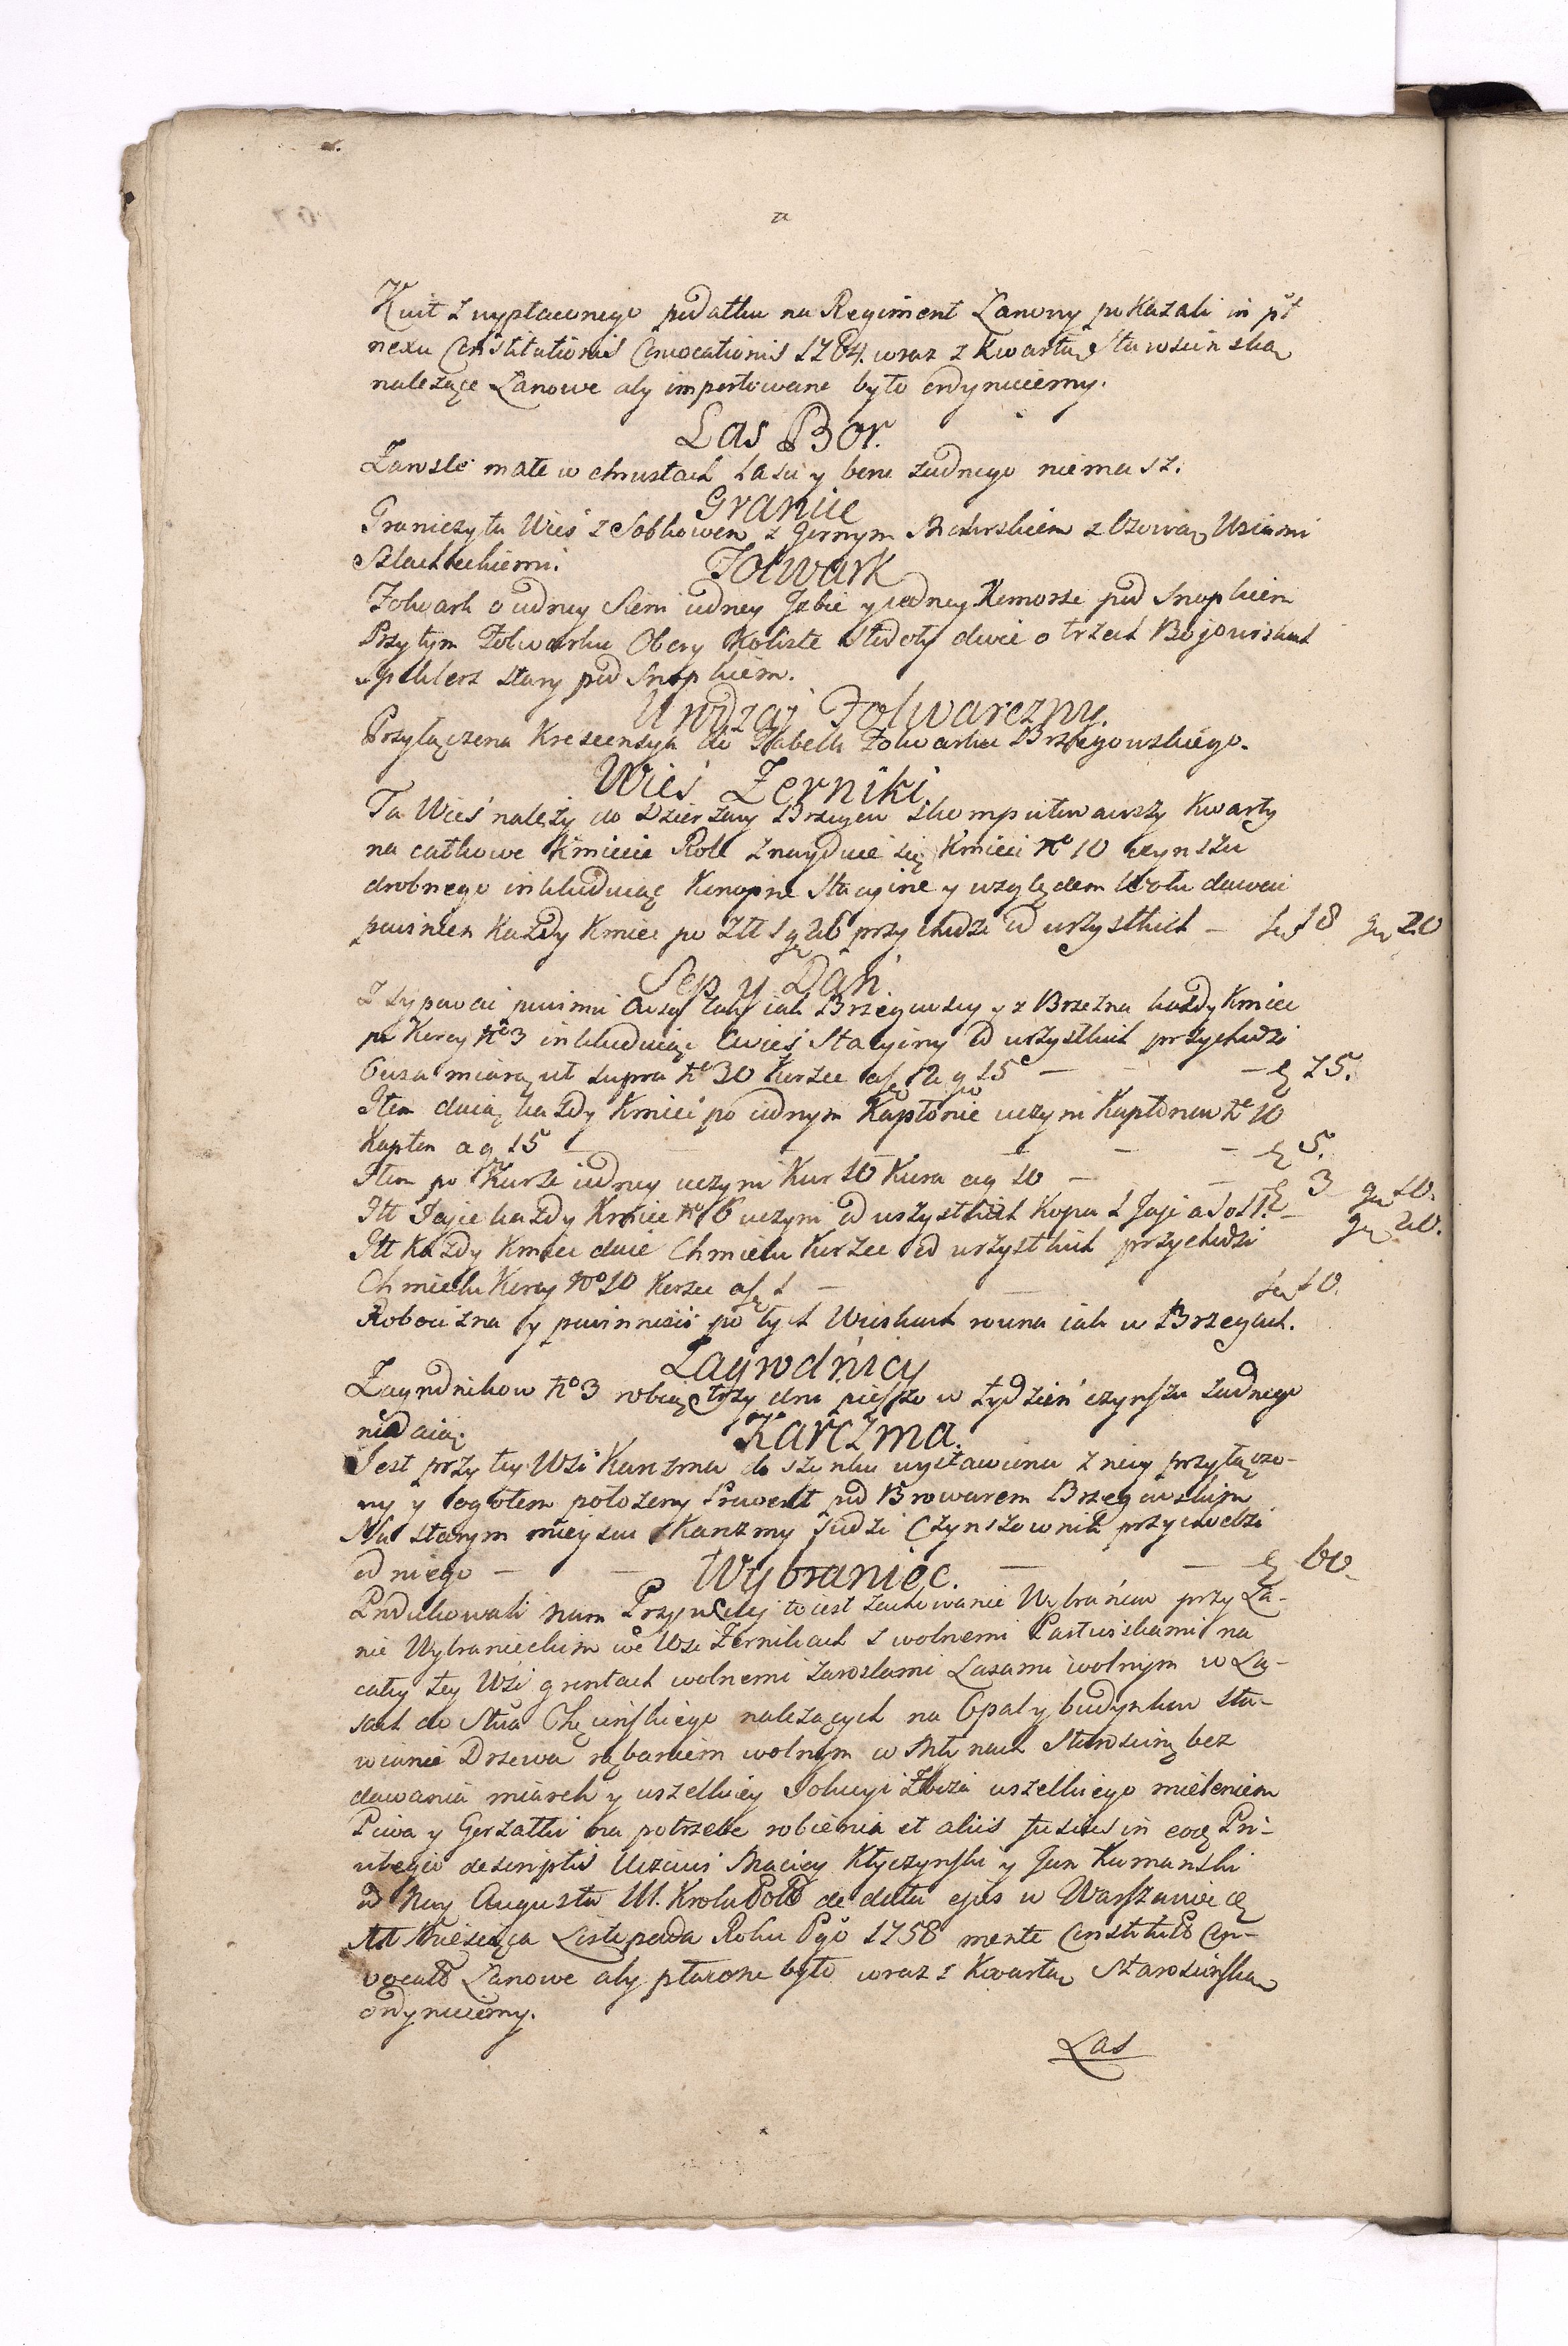 Kwit z wypłaconego podatku na Regiment Łanowy pokazali in
nexu Constitutionis Convocationis 1764. wraz z Kwartą Starościńską
należące Łanowe aby importowane było ordynuiemy.
Las Bor.
Zarośle małe w chrustach Lasu y boru żadnego niemasz.
Granice
Graniczy ta Wieś z Sobkowem z Gornym z Wsiami
Szlacheckiemi.
Folwark
Folwark o iedney Sieni iedney Izbie y iedney Komorze pod Snopkiem
Przy tym Folwarku Obory Koliste Stodoły dwie o trzech Bojowiskach
Spichlerz stary pod Snopkiem.
Urodzaj Folwarczny.
Przyłączona Krescensya do Tabelli Folwarku Brzegowskiego.
Wieś Żerniki.
Ta Wieś należy do Dzierżawy Brzegow skomputowawszy Kwarty
na całkowe Kmiecie Role znayduie się Kmieci No 10 czynszu
drobnego inkluduiąc Konopne Stacyine y względem Wołu dawać
powinien Każdy Kmieć po Złł 1 gr 26 przychodzi od wszystkich — 18 gr 20
Sep y Dań.
Zsypować powinni Owsy tak iak Brzegowscy y z Brzezna każdy Kmieć
po Korcy No 3 inkluduiąc Owies Stacyiny od wszystkich przychodzi
Owsa miarą ut supra No 30 Korzec a 2 g 15 — — — 75.
Item daią każdy Kmieć po iednym Kapłonie uczyni Kapłonow No 10
Kapłon a g 15 — — — — — 5.
Item po Kurze iedney uczyni Kur 10 Kura a g 10 — — 3 gr 10.
Itt Jaje każdy Kmieć No 6 uczyni od wszystkich Kopa 1 Jaj — gr 20.
Itt Każdy Kmieć daie Chmielu Korzec od wszystkich przychodzi
Chmielu Korcy No 10 Korzec a 1 — — 10.
Robocizna y powinność po tych Wioskach rowna iak w Brzegach.
Zagrodnicy
Zagrodnikow No 3 robią trzy dni pieszo w tydzień czynszu żadnego
niedaią.
Karczma.
Jest przy tey Wsi Karczma do szynku wystawiona z niey przyłączo-
ny y ogołem położony Prowent pod Browarem Brzegowskim
Na starym mieyscu Karczmy siedzi Czynszownik przychodzi
od niego — — — — 60.
Wybraniec.
Produkowali nam Przywiley to iest zachowanie Wybrańcow przy Ła-
nie Wybranieckim we Wsi Żernikach z wolnemi Pastwiskami na
całey tey Wsi gruntach wolnemi Zaroslami Lasami wolnym w La-
sach do Stwa Chęcińskiego należących na Opał y budynkow sta-
wianie Drzewa rąbaniem wolnym w Młynach Starościną bez
dawania miarek y wszelkiey Zboża wszelkiego mieleniem
Piwa y Gorzałki na potrzebe robienia et aliis fusius in eodem Pri-
vilegio descriptis Maciey Kłyczynski y Jan Kumanski
od Nay Augusta III. Krola Polo de data ejus w Warszawie
Miesiąca Listopada Roku Pgo 1758 mente Constituto Con-
vocato Łanowe aby płacone było wraz z Kwartą Starościńską
ordynuiemy.
Las